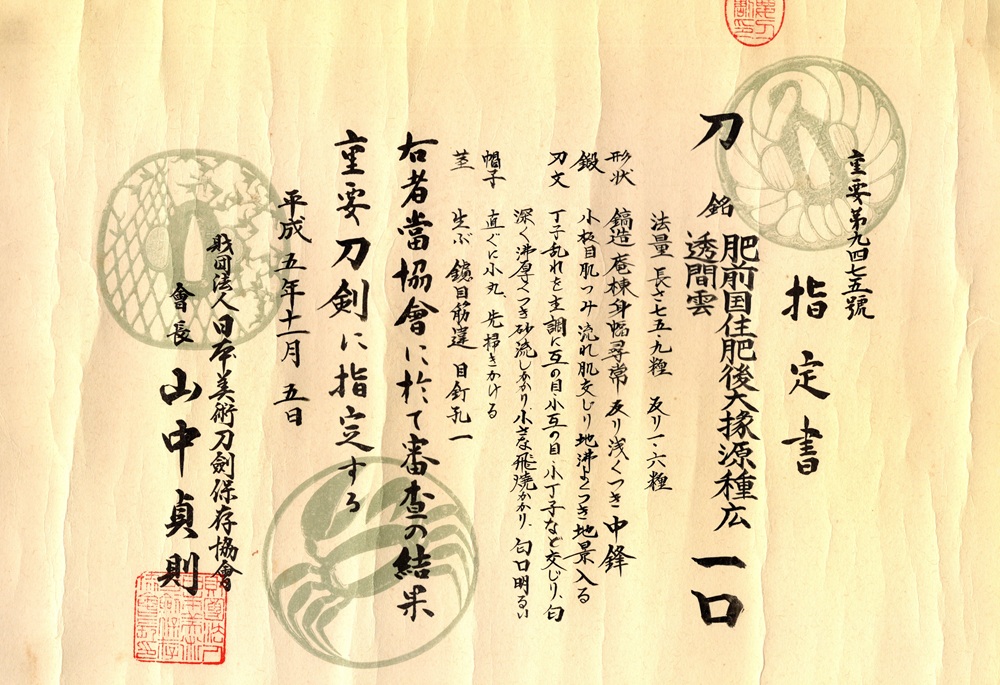 重要第九四七五號
指定書
刀 銘 肥前国住肥後大掾源種広 一口
透間雲
法量 長さ七五・九糎 反り一・六糎
形状 鎬造 庵棟 身幅尋常 反り浅くつき 中鋒
鍛 小板目肌つみ 流れ肌交じり 地沸よくつき 地景入る
刃文 丁子乱れを主調に互の目・小互の目・小丁子など交じり、匂
深く沸厚くつき 砂流しかかり 小さな飛焼かかり、匂口明るい
帽子 直ぐに小丸、先掃きかける
茎 生ぶ 鑢目筋違 目釘孔一
右者當協會に於て審査の結果
重要刀剣に指定する
平成五年十一月五日
財団法人日本美術刀劍保存協會
會長 山中貞則